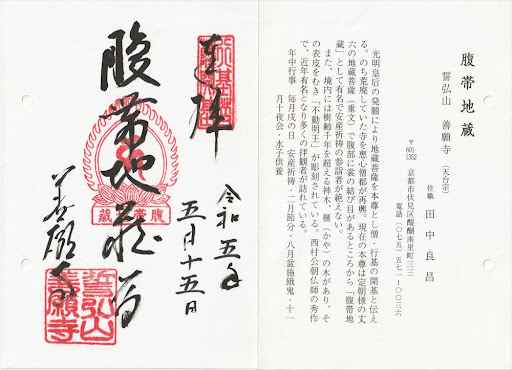 奉拝
令和五年
五月十五日
腹帯地蔵尊
善願寺
誓弘山
善願寺
腹帯地蔵
誓弘山 善願寺 (天台宗)
住職 田中良昌
〒601-1352 京都市伏見区醍醐南里町三三
電話(〇七五)五七一-〇〇三六
光明皇后の発願により地蔵菩薩を本尊とし僧・行基の開基と伝え
る。のち荒廃していた寺を恵心僧都が再興。現在の本尊は定朝様の丈
六の地蔵菩薩(重文)で腹部に裳の結び目が有るところから「腹帯地
蔵」として有名で安産祈祷の参詣者が絶えない。
また、境内には樹齢千年を超える神木、榧(かや)の木があり、そ
の表皮をむき「不動明王」が彫刻されている。西村公朝仏師の秀作
で、近年有名となり多くの拝観者が訪れている。
年中行事 毎月戌の日 安産祈祷・二月節分・八月盆施餓鬼・十一
月十夜会・水子供養